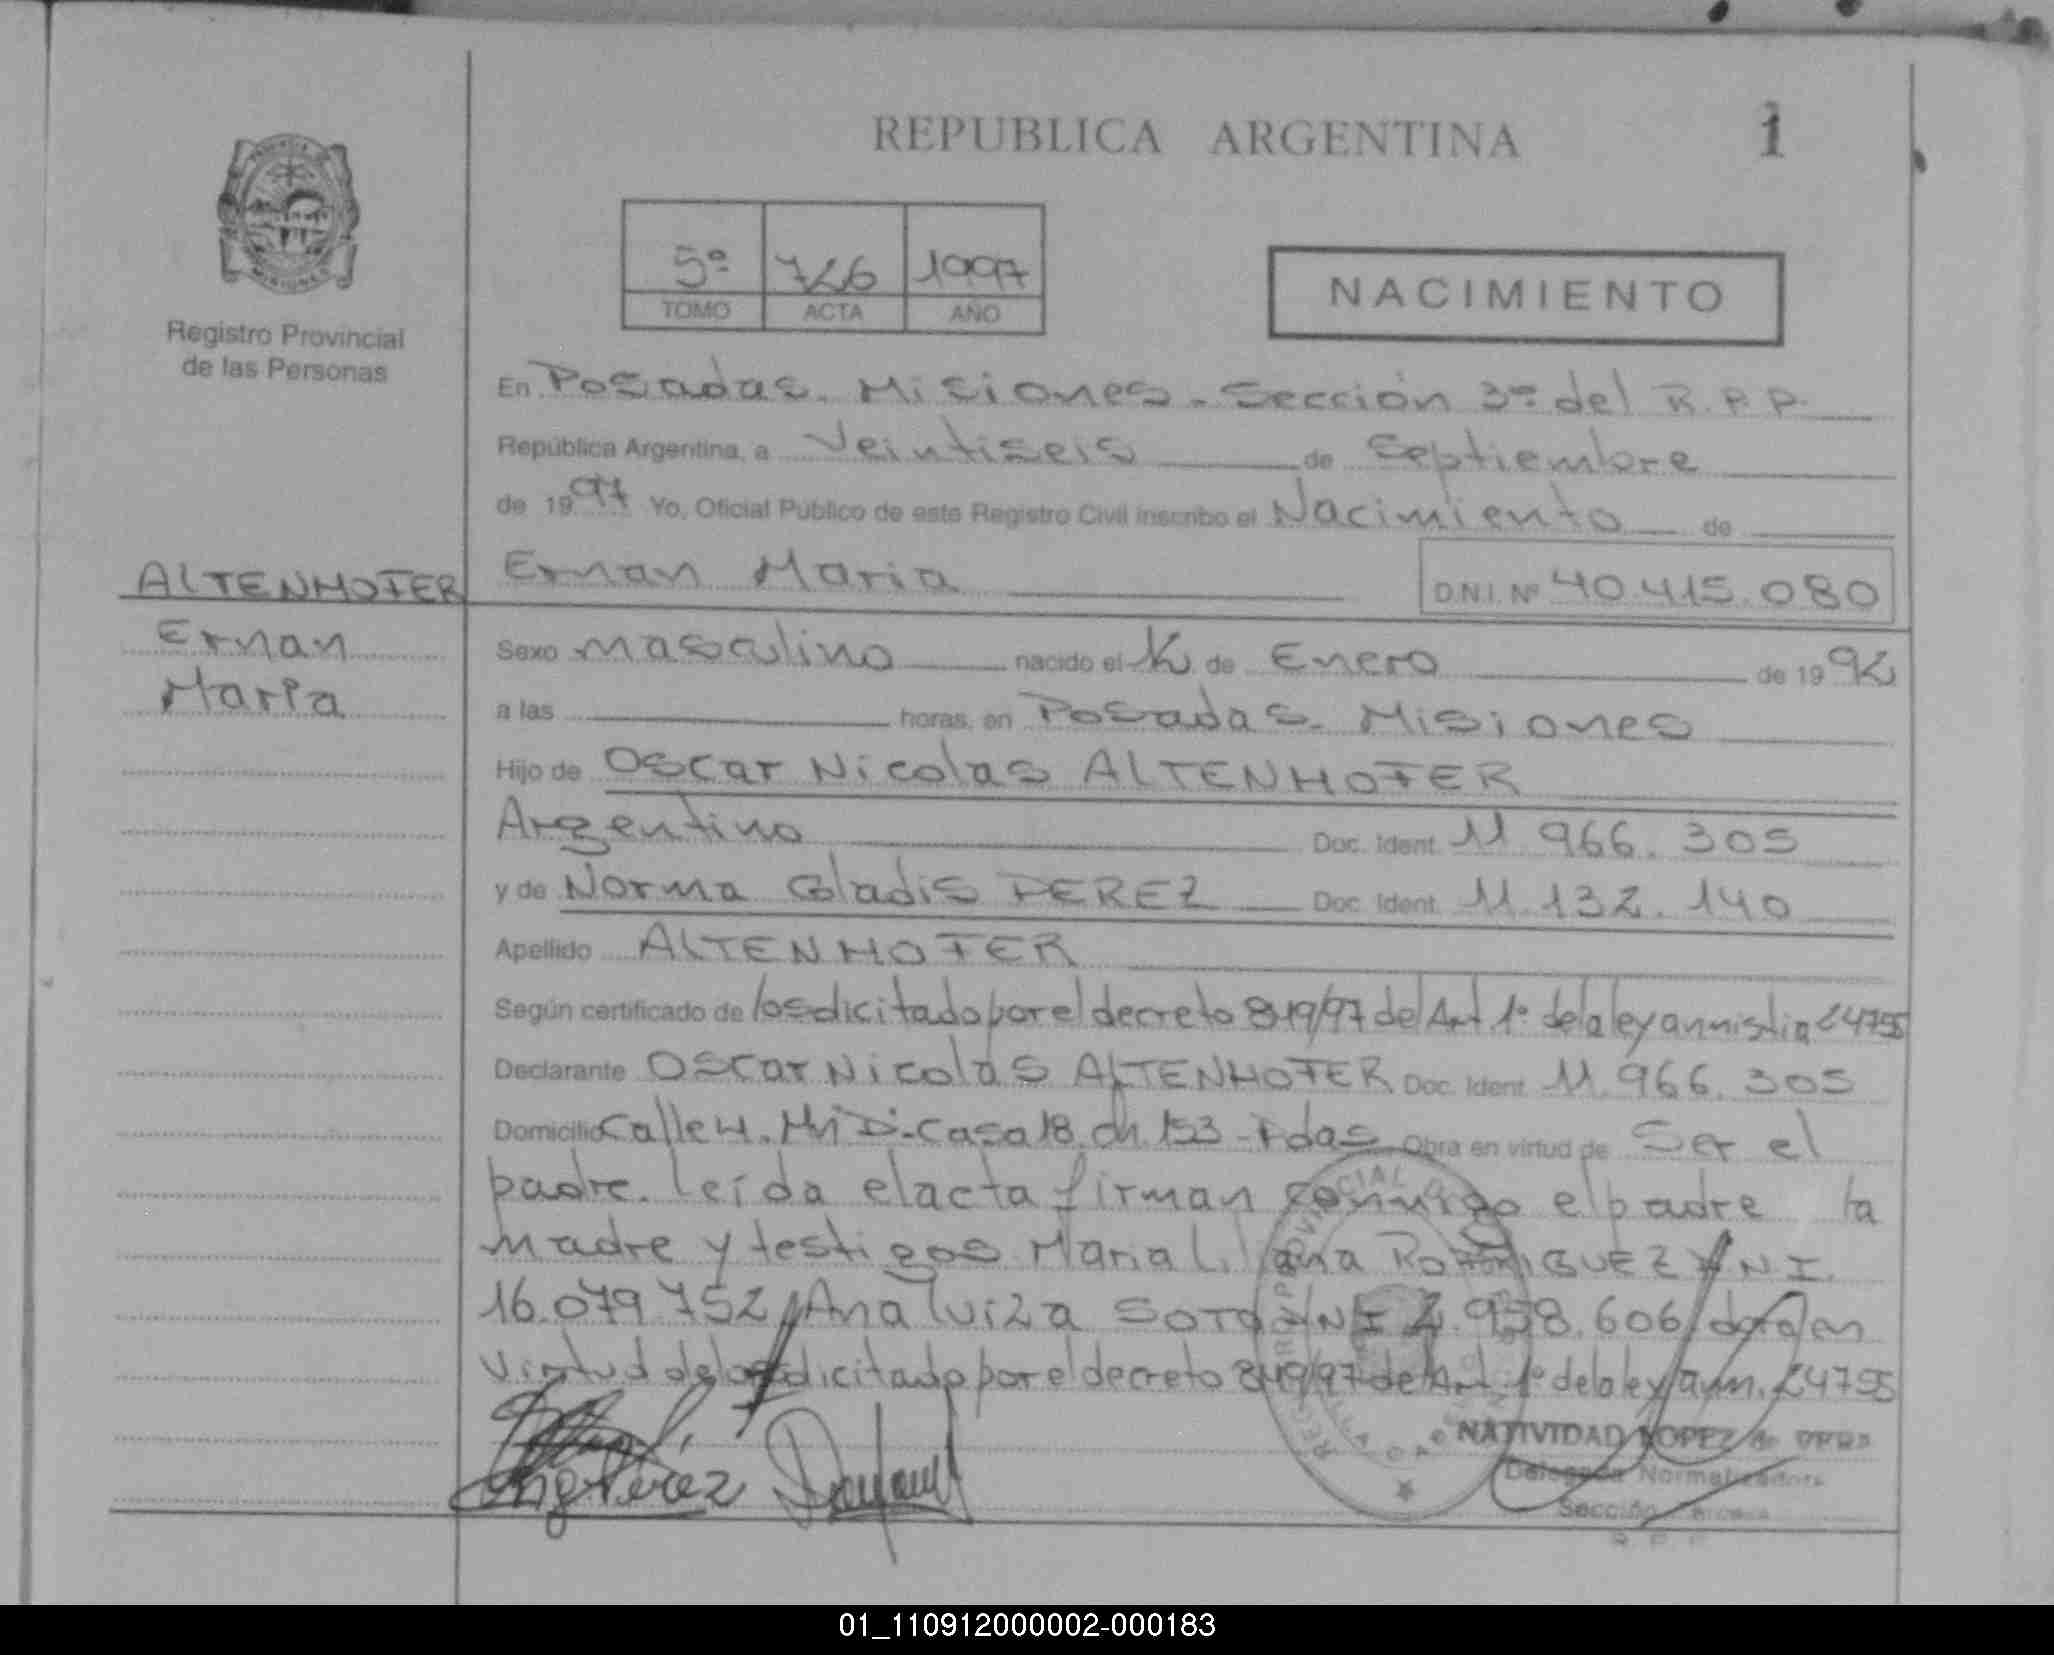 REPUBLICA ARGENTINA
1
Registro Provincial
de las Personas
5º 726 1997
TOMO ACTA AÑO
NACIMIENTO
En Posadas. Misiones. Sección 3º del R.P.P.
República Argentina, a Veintiseis de Septiembre
de 1997 Yo, Oficial Público de este Registro Civil inscribo el Nacimiento de
ALTENHOFER
Ernan
Maria
Ernan Maria D.N.I. Nº 40.415.080
Sexo masculino nacido el 12 de Enero de 1992
a las horas, en Posadas. Misiones
Hijo de Oscar Nicolas ALTENHOFER
Argentino Doc. Ident. 11.966.305
y de Norma Gladis PEREZ Doc. Ident. 11.132.140
Apellido ALTENHOFER
Según certificado de los dicitado por el decreto 849/97 del Art 1º de la ley annistia 24755
Declarante Oscar Nicolas ALTENHOFER Doc. Ident. 11.966.305
Domicilio Calle 4. Casa 18. ch. 153 - Pdas Obra en virtud de Ser el
padre. leída el acta firman conmigo el padre la
madre y testigos Maria Liliana RODRIGUEZ DNI.
16.079.752 Ana Luiza SOTO DNI 958.606
virtud de los dicitado por el decreto 849/97 del Art. 1º de la ley 24755
NATIVIDAD LOPEZ de
Delegada Normalizadora
Sección Tercera
R. P. P.
01_110912000002-000183